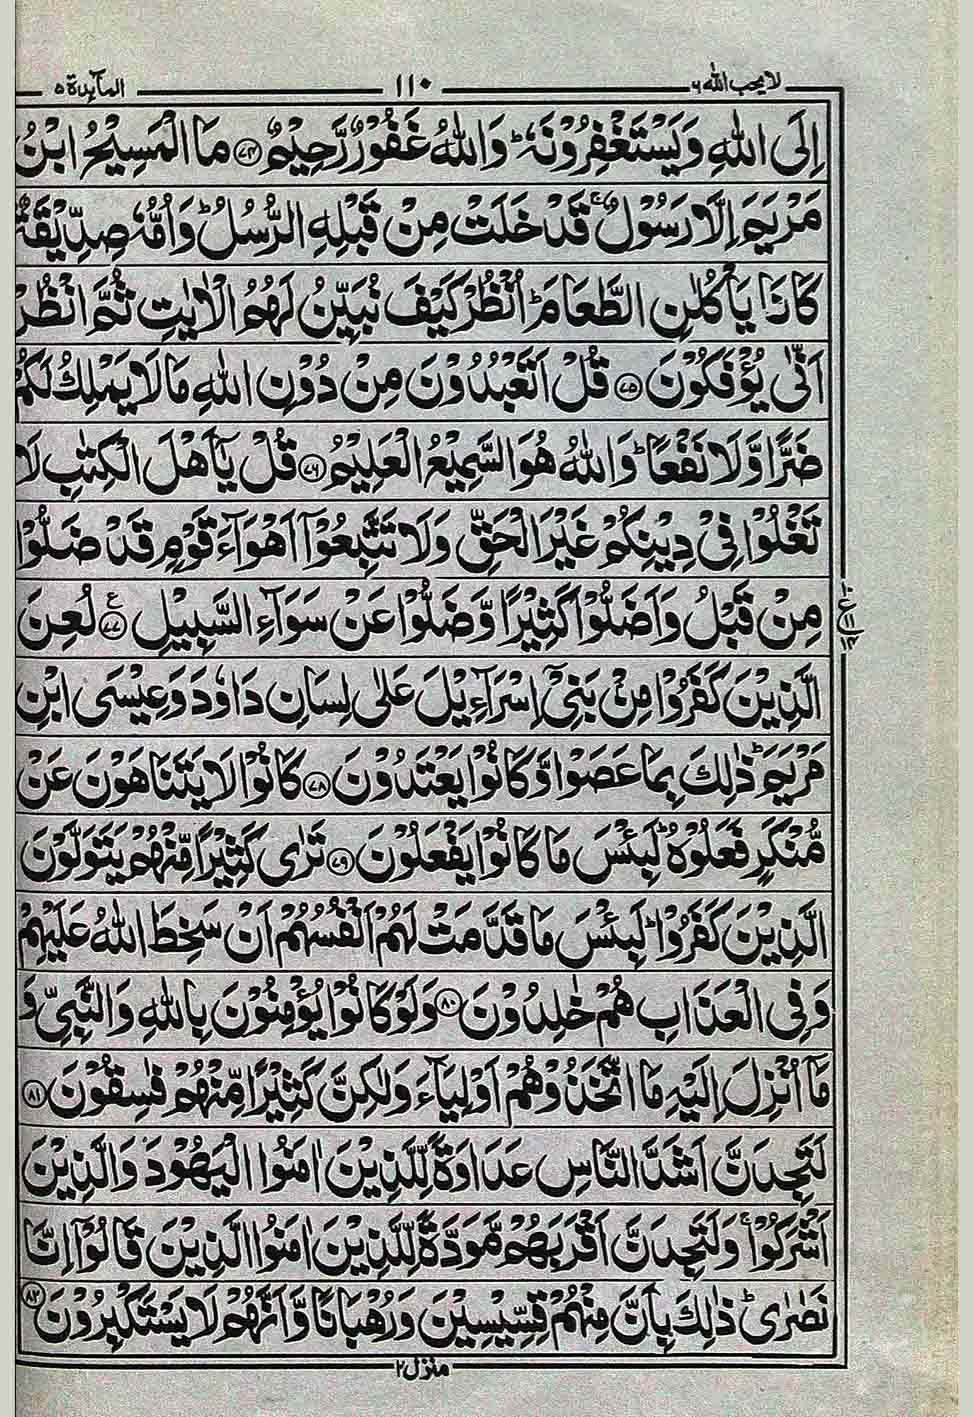 لا يحب الله ٦ ١١٠ المآئدة ٥
اِلَى اللّٰهِ وَيَسْتَغْفِرُوْنَهٗ ؕ وَاللّٰهُ غَفُوْرٌ رَّحِيْمٌ ﴿۷۴﴾ مَا الْمَسِيْحُ ابْنُ
مَرْيَمَ اِلَّا رَسُوْلٌ ۚ قَدْ خَلَتْ مِنْ قَبْلِهِ الرُّسُلُ ؕ وَاُمُّهٗ صِدِّيْقَةٌ
كَانَا يَاْكُلٰنِ الطَّعَامَ ؕ اُنْظُرْ كَيْفَ نُبَيِّنُ لَهُمُ الْاٰيٰتِ ثُمَّ انْظُرْ
اَنّٰى يُؤْفَكُوْنَ ﴿۷۵﴾ قُلْ اَتَعْبُدُوْنَ مِنْ دُوْنِ اللّٰهِ مَا لَا يَمْلِكُ لَكُمْ
ضَرًّا وَّلَا نَفْعًا ؕ وَاللّٰهُ هُوَ السَّمِيْعُ الْعَلِيْمُ ﴿۷۶﴾ قُلْ يٰۤاَهْلَ الْكِتٰبِ لَا
تَغْلُوْا فِيْ دِيْنِكُمْ غَيْرَ الْحَقِّ وَلَا تَتَّبِعُوْۤا اَهْوَآءَ قَوْمٍ قَدْ ضَلُّوْا
مِنْ قَبْلُ وَاَضَلُّوْا كَثِيْرًا وَّضَلُّوْا عَنْ سَوَآءِ السَّبِيْلِ ﴿۷۷﴾ ع لُعِنَ
الَّذِيْنَ كَفَرُوْا مِنْۢ بَنِيْۤ اِسْرَآءِيْلَ عَلٰى لِسَانِ دَاوٗدَ وَعِيْسَى ابْنِ
مَرْيَمَ ؕ ذٰلِكَ بِمَا عَصَوْا وَّكَانُوْا يَعْتَدُوْنَ ﴿۷۸﴾ كَانُوْا لَا يَتَنَاهَوْنَ عَنْ
مُّنْكَرٍ فَعَلُوْهُ ؕ لَبِئْسَ مَا كَانُوْا يَفْعَلُوْنَ ﴿۷۹﴾ تَرٰى كَثِيْرًا مِّنْهُمْ يَتَوَلَّوْنَ
الَّذِيْنَ كَفَرُوْا ؕ لَبِئْسَ مَا قَدَّمَتْ لَهُمْ اَنْفُسُهُمْ اَنْ سَخِطَ اللّٰهُ عَلَيْهِمْ
وَفِي الْعَذَابِ هُمْ خٰلِدُوْنَ ﴿۸۰﴾ وَلَوْ كَانُوْا يُؤْمِنُوْنَ بِاللّٰهِ وَالنَّبِيِّ وَ
مَاۤ اُنْزِلَ اِلَيْهِ مَا اتَّخَذُوْهُمْ اَوْلِيَآءَ وَلٰكِنَّ كَثِيْرًا مِّنْهُمْ فٰسِقُوْنَ ﴿۸۱﴾
لَتَجِدَنَّ اَشَدَّ النَّاسِ عَدَاوَةً لِّلَّذِيْنَ اٰمَنُوا الْيَهُوْدَ وَالَّذِيْنَ
اَشْرَكُوْا ۚ وَلَتَجِدَنَّ اَقْرَبَهُمْ مَّوَدَّةً لِّلَّذِيْنَ اٰمَنُوا الَّذِيْنَ قَالُوْۤا اِنَّا
نَصٰرٰى ؕ ذٰلِكَ بِاَنَّ مِنْهُمْ قِسِّيْسِيْنَ وَرُهْبَانًا وَّاَنَّهُمْ لَا يَسْتَكْبِرُوْنَ ﴿۸۲﴾
منزل ٢